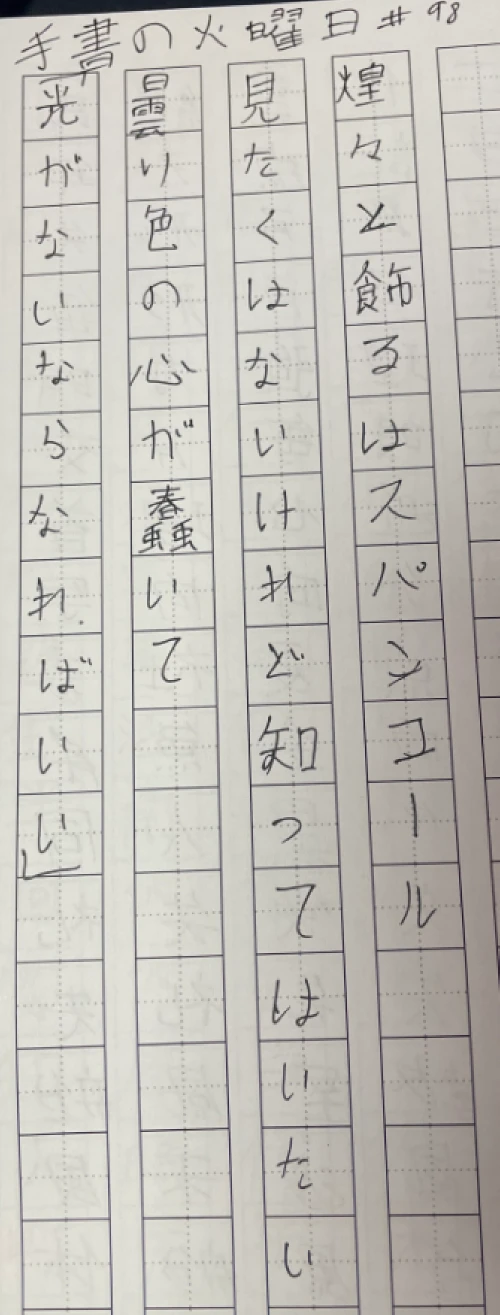 手書の火曜日#98
煌々と飾るはスパンコール
見たくはないけれど知ってはいたい
曇り色の心が蠢いて
「光がないならなれればいい」